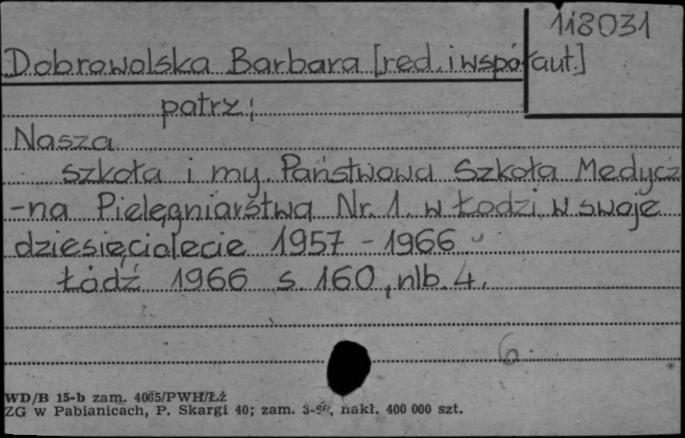 118031
Dobrowolska Barbara [red. i współaut.]
patrz:
Nasza
szkoła i my. Państwowa Szkoła Medycz
-na Pielęgniarstwa Nr. 1. w Łodzi w swoje
dziesięciolecie 1957 - 1966
Łódź 1966 s. 160, nlb. 4.
6
WD/B 15-b zam. 4065/PWH/Łź
ZG w Pabianicach, P. Skargi 40; zam. nakł. 400 000 szt.